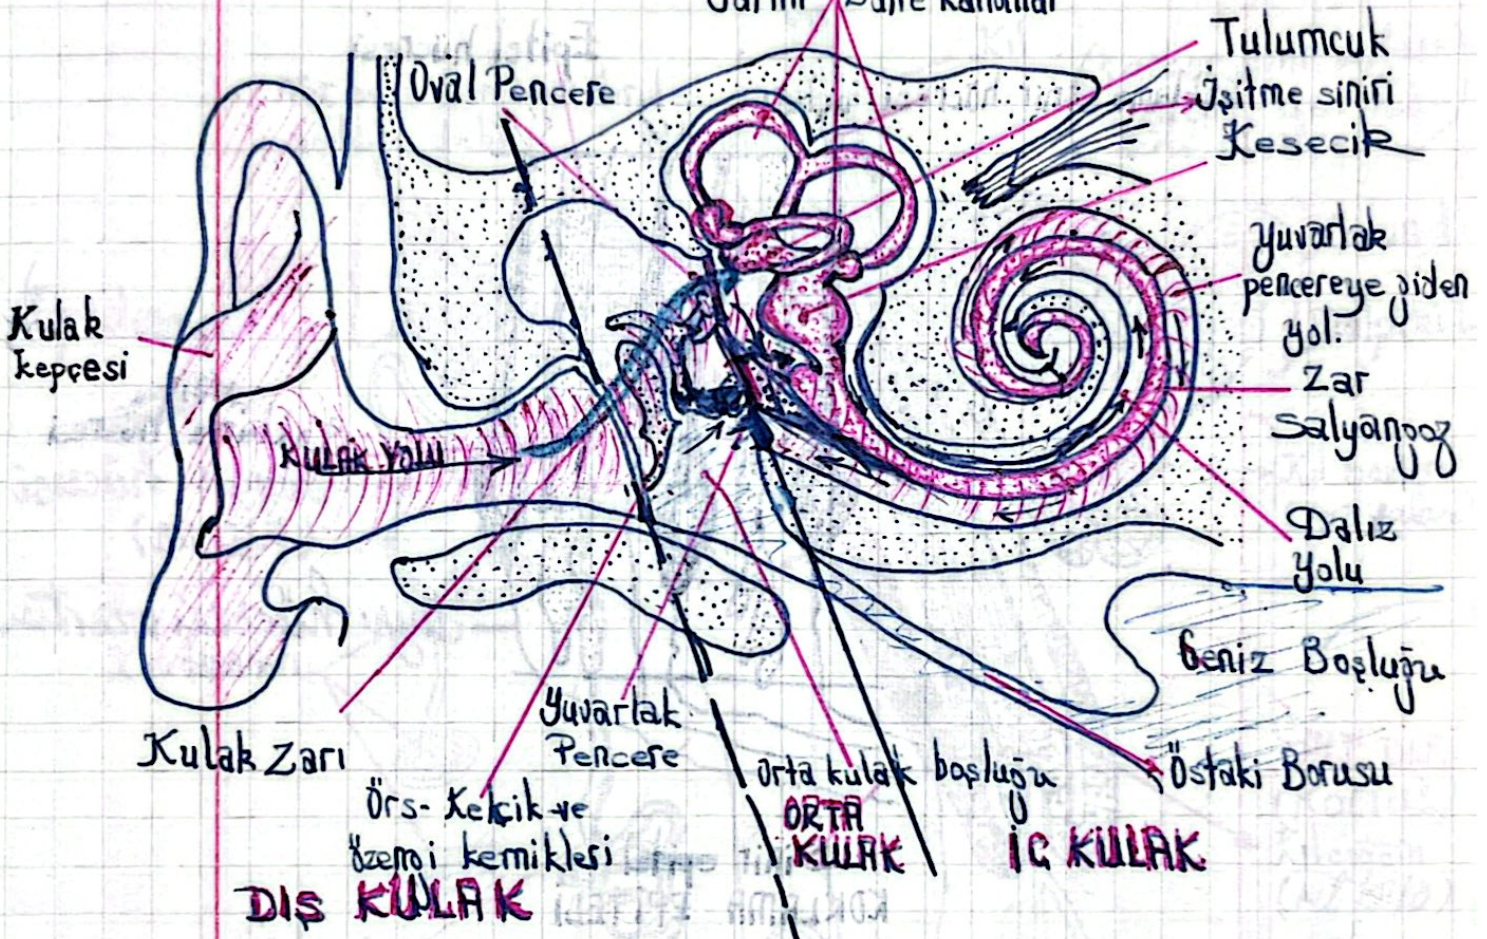 Yarım Daire Kanalları
Oval Pencere
Tulumcuk
İşitme siniri
Kesecik
Yuvarlak
pencereye giden
yol.
Zar
salyangoz
Dalız
yolu
Kulak
kepçesi
KULAK YOLU
Geniz Boşluğu
Kulak Zarı
Yuvarlak
Pencere
Örs- Kekçik ve
özengi kemikleri
Orta kulak boşluğu
Östaki Borusu
ORTA
KULAK
İÇ KULAK
DIŞ KULAK